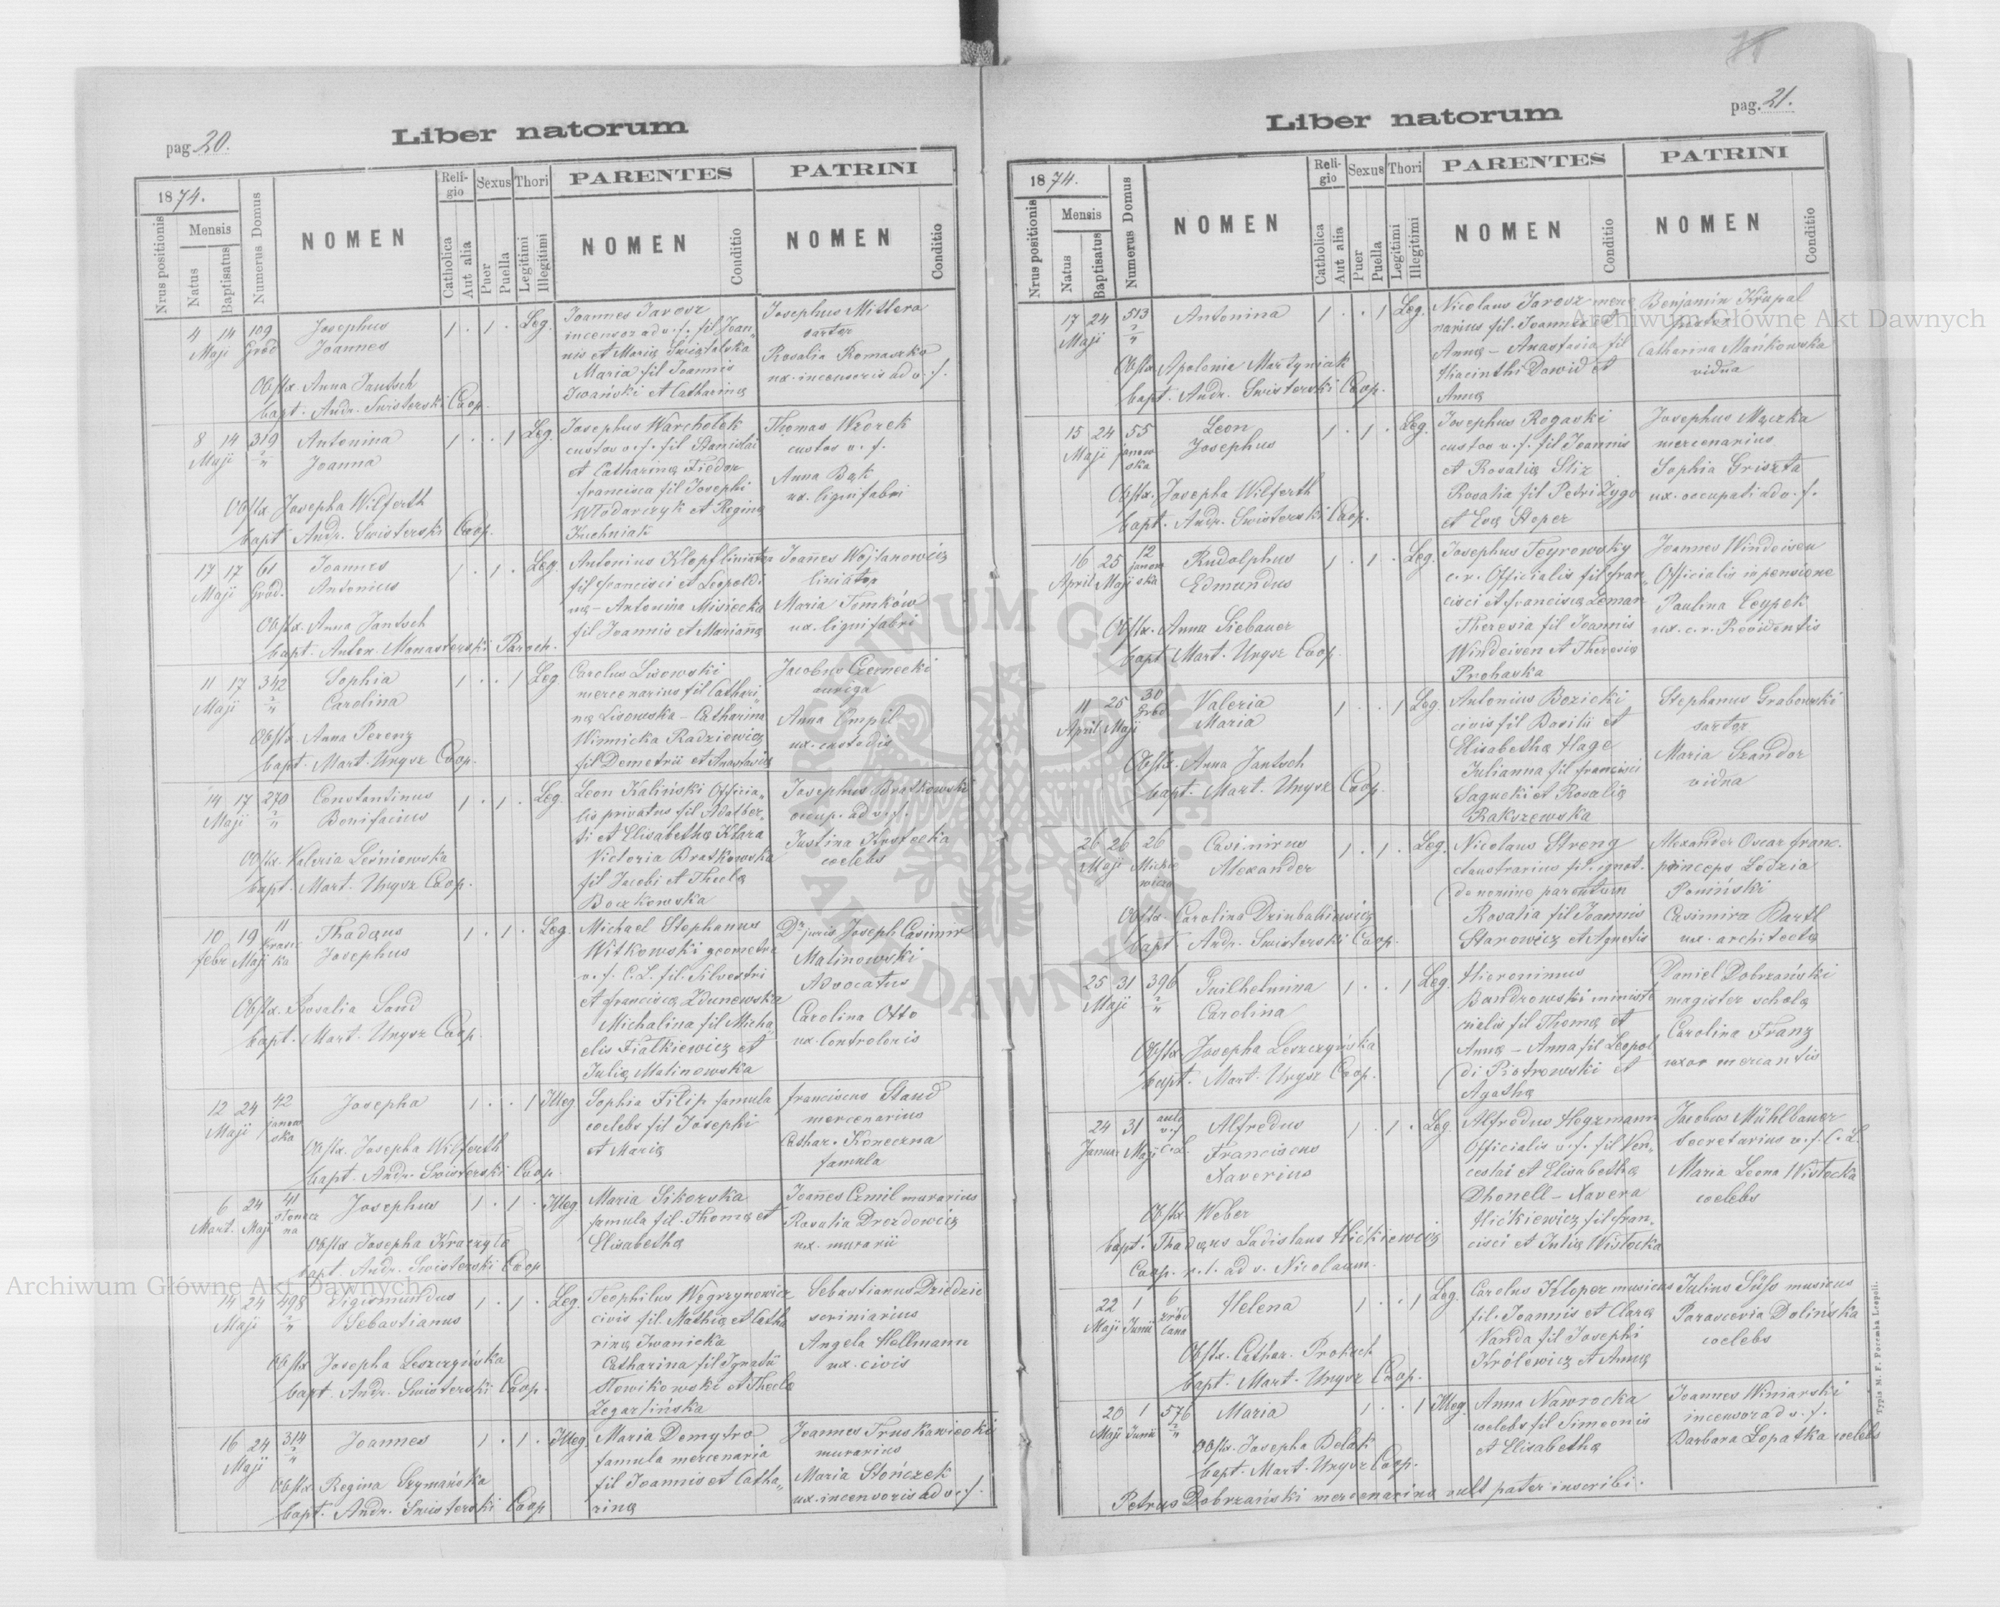 pag. 20.
Liber natorum
1874.
Nrus positionis
Mensis
Natus
Baptisatus
Numerus Domus
NOMEN
Religio
Catholica
Aut alia
Sexus
Puer
Puella
Thori
Legitimi
Illegitimi
PARENTES
NOMEN
Conditio
PATRINI
NOMEN
Conditio
4 14 109 Josephus 1 . 1 . Leg. Joannes Jarosz Josephus Mittera
Maji Gród Joannes incensor ad v. f. fil Joan- sartor
nis et Mariæ Świątalska Rosalia Romaszka
Maria fil Joannis ux. incensoris ad v. f.
Obstx Anna Jantsch Iwański et Catharinæ
bapt. Andr. Świsterski Coop.
8 14 319 Antonina 1 . . 1 Leg. Josephus Warchołek Thomas Wzorek
Maji 2/4 Joanna custos v. f. fil Stanislai custos v. f.
et Catharinæ Fiedor Anna Bąk
francisca fil Josephi ux. lignifabri
Obstx Josepha Wilferth Włodarczyk et Reginæ
bapt Andr. Swisterski Coop. Kuchniak
17 17 61 Joannes 1 . 1 . Leg. Antonius Klopf liniator Joannes Wojtanowicz
Maji Gród. Antonius fil francisci et Leopoldi- liniator
næ - Antonina Misiecka Maria Tomków
Obstx. Anna Jantsch fil Joannis et Mariannæ ux. lignifabri
bapt. Anton. Monasterski Paroch.
11 17 342 Sophia 1 . . 1 Leg Carolus Lisowski Jacobus Czernecki
Maji 2/4 Carolina mercenarius fil Cathari- auriga
næ Lisowska - Catharina Anna Empil
Obstx Anna Perenz Winnicka Radziewicz ux. custodis
bapt. Mart. Ungsz Coop. fil Demetrii et Anastasiæ
14 17 270 Constantinus 1 . 1 . Leg. Leon Kaliński Officia- Josephus Bratkowski
Maji 2/4 Bonifacius lis privatus fil Adalber- occup. ad v. f.
ti et Elisabethæ Klara Justina
Obstx. Valeria Leśniowska Victoria Bratkowska coelebs
bapt. Mart. Ungsz Coop. fil Jacobi et Theclæ
Boczkowska
10 19 11 Thadæus 1 . 1 . Leg Michael Stephanus Dr juris Joseph Casimir
febr. Maji Josephus Witkowski geometra Malinowski
v. f. C. L. fil. Silvestri Advocatus
et franciscæ Zdunowska Carolina Otto
Obstx. Rosalia Sand Michalina fil Micha- ux. Controloris
bapt. Mart. Ungsz Coop. elis Fiałkiewicz et
Juliæ Malinowska
12 24 42 Josepha 1 . . 1 Illeg Sophia Filip famula franciscus Staud
Maji janow ska coelebs fil Josephi mercenarius
Obstx. Josepha Wilferth et Mariæ Cathar. Koneczna
bapt. Andr. Świsterski Coop. famula
6 24 41 Josephus 1 . 1 . Illeg Maria Sikorska Joannes Czmil murarius
Mart. Maji słonecz na famula fil. Thomæ et Rosalia Drozdowicz
Obstx Josepha Kraczyło Elisabethæ ux. murarii
bapt. Andr. Swisterski Coop
14 24 498 Sigismundus 1 . 1 . Leg. Teophilus Węgrzynowicz Sebastianus Dziedzic
Maji 2/4 Sebastianus civis fil. Mathiæ et Catha scriniarius
rinæ Iwanicka Angela Hellmann
Obstx Josepha Leszczyńska Catharina fil Ignatii ux. civis
bapt. Andr. Swisterski Coop. Słowikowski et Theclæ
Zegarlińska
16 24 314 Joannes 1 . 1 . Illeg Maria Demytro Joannes Truskawiecki
Maji 2/4 famula mercenaria murarius
Obstx Regina Szymańska fil Joannis et Catha- Maria Stończek
bapt. Andr. Świsterski Coop rinæ ux. incensoris ad v. f.
pag. 21.
Liber natorum
1874.
Nrus positionis
Mensis
Natus
Baptisatus
Numerus Domus
NOMEN
Religio
Catholica
Aut alia
Sexus
Puer
Puella
Thori
Legitimi
Illegitimi
PARENTES
NOMEN
Conditio
PATRINI
NOMEN
Conditio
17 24 513 Antonina 1 . . 1 Leg. Nicolaus Jarosz merce Benjamin Krupal
Maji 2/4 narius fil. Joannes et pistor
Annæ - Anastasia fil Catharina Mańkowska
Obstx Apolonia Martyniak Hiacinthi Dawid et vidua
bapt. Andr. Swisterski Coop. Annæ
15 24 55 Leon 1 . 1 . Leg. Josephus Rogaski Josephus Mączka
Maji janow ska Josephus custos v. f. fil Joannis mercenarius
et Rosaliæ Sliz Sophia Griszta
Obstx. Josepha Wilferth Rosalia fil Petri Zygo ux. occupati ad v. f.
bapt. Andr. Swisterski Coop. et Evæ Stoper
16 25 12 Rudolphus 1 . 1 . Leg. Josephus Teyrowsky Joannes Windeisen
April Maji janow ska Edmundus c. r. Officialis fil fran- Officialis in pensione
cisci et franciscæ Leman Paulina Ceypek
Obstx. Anna Siebauer Theresia fil Joannis ux. c. r. Presidentis
bapt Mart. Ungsz Coop. Windeisen et Theresiæ
Prohaska
11 25 30 Valeria 1 . . 1 Leg. Antonius Bozicki Stephanus Grabowski
April Maji Gród Maria civis fil Basilii et sartor
Elisabethæ Hage Maria Szandor
Obstx. Anna Jantsch Julianna fil francisci vidua
bapt. Mart. Ungsz Coop. Sagucki et Rosaliæ
Rakszewska
26 26 26 Casimirus 1 . 1 . Leg. Nicolaus Streng Alexander Oscar franc.
Maji Mickie wicza Alexander claustrarius fil. ignot. princeps Lodzia
de nomine parentum Poniński
Obstx. Carolina Dziubakiewicz Rosalia fil Joannis Casimira Bartl
bapt. Andr. Swisterski Coop. Starowicz et Agnetis ux. architectæ
25 31 396 Guilhelmina 1 . . 1 Leg. Hieronimus Daniel Dobrzański
Maji 2/4 Carolina Bandrowski ministe magister scholæ
rialis fil Thomæ et Carolina Franz
Obstx. Josepha Leszczyńska Annæ - Anna fil Leopol uxor mercantis
bapt. Mart. Ungsz Coop. di Piotrowski et
Agathæ
24 31 aula v. f. C. L. Alfredus 1 . 1 . Leg. Alfredus Hogzmann Jacobus Mühlbauer
Januar Maji Franciscus Officialis v. f. fil Ven- Secretarius v. f. C. L.
Xaverius ceslai et Elisabethæ Maria Leona Wisłocka
Dhonell - Xavera coelebs
Obstx Weber Hićkiewicz fil fran-
bapt. Thadæus Ladislaus Hićkiewicz cisci et Juliæ Wisłocka
Coop. r. l. ad s. Nicolaum.
22 1 6 Helena 1 . . 1 Leg. Carolus Kloper musicus Julius Süss musicus
Maji Junii źród lana fil. Joannis et Claræ Parascevia Dolinska
Vanda fil Josephi coelebs
Obstx. Cathar. Proksch Królewicz et Annæ
bapt. Mart. Ungsz Coop.
20 1 576 Maria 1 . . 1 Illeg. Anna Nawrocka Joannes Winiarski
Maji Junii 2/4 coelebs fil Simeonis incensor ad v. f.
Obstx. Josepha Belak et Elisabethæ Barbara Łopatka coelebs
bapt. Mart. Ungsz Coop.
Petrus Dobrzański mercenarius vult pater inscribi.
Typis M. F. Poremba Leopoli.
Archiwum Główne Akt Dawnych
Archiwum Główne Akt Dawnych
ARCHIWUM GŁÓWNE AKT DAWNYCH